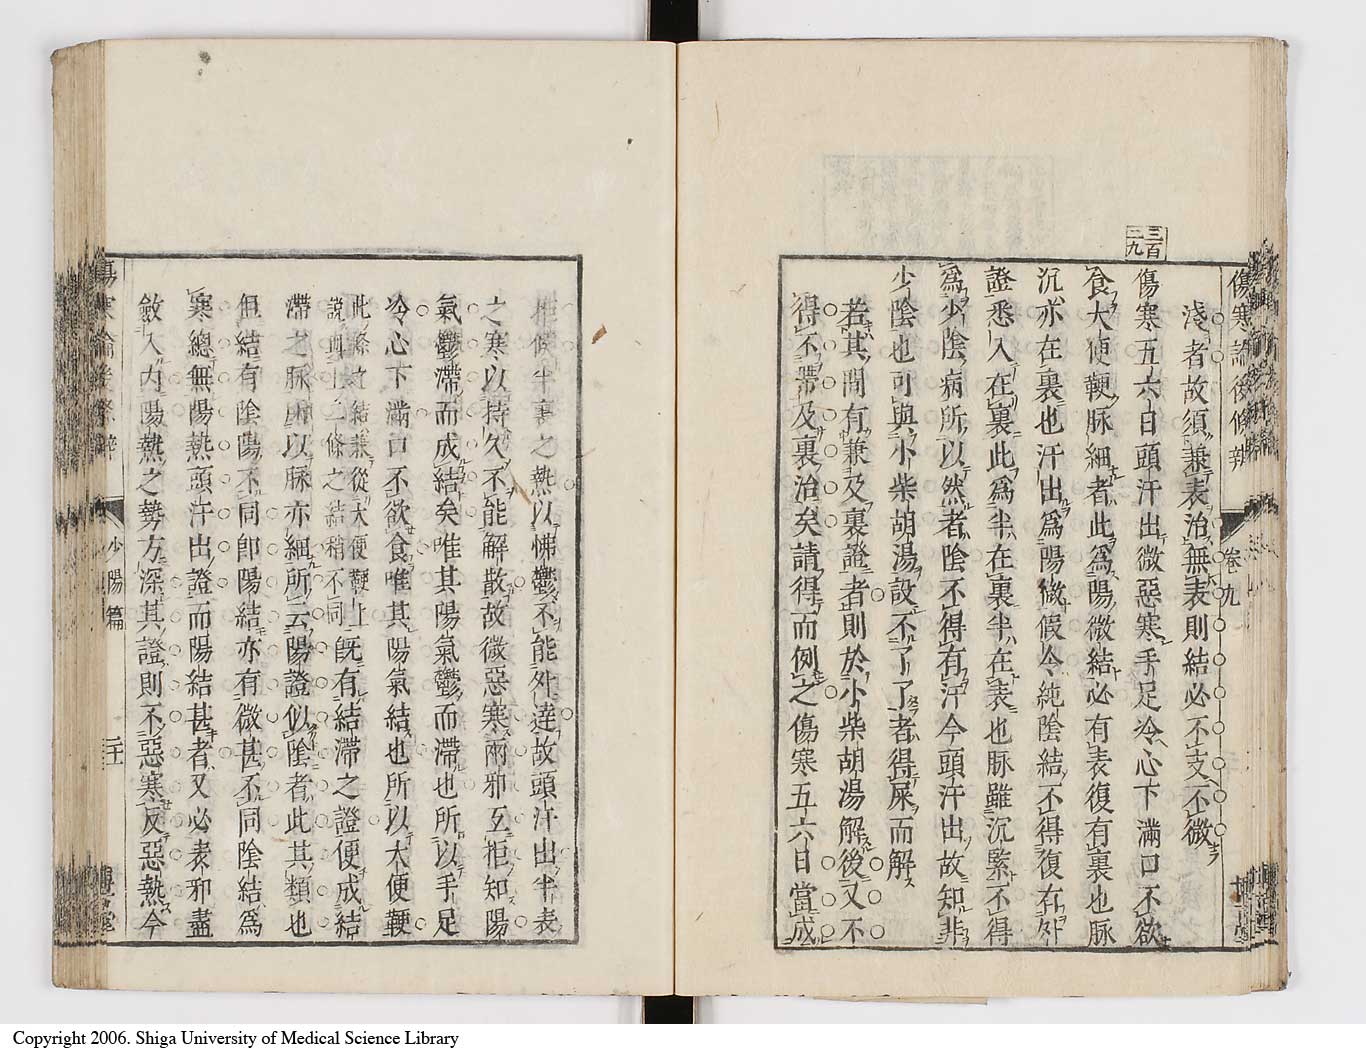 傷寒論後條辨
卷九
淺者故須兼表治無表則結必不支不微
三百二九
傷寒五六日頭汗出微惡寒手足冷心下滿口不欲
食大便鞕脉細者此爲陽微結必有表復有裏也脉
沉亦在裏也汗出爲陽微假令純陰結不得復有外
證悉入在裏此爲半在裏半在表也脉雖沉緊不得
爲少陰病所以然者陰不得有汗今頭汗出故知非
少陰也可與小柴胡湯設不了了者得屎而解
若其間有兼及裏證者則於小柴胡湯解後又不
得不帶及裏治矣請得而例之傷寒五六日當成
半裏之熱以怫鬱不能外達故頭汗出半表
之寒以持久不能解散故微惡寒兩邪互拒知陽
氣鬱滯而成結矣唯其陽氣鬱而滯也所以手足
冷心下滿口不欲食唯其陽氣結也所以大便鞕
此條之結兼從大便鞕上
說與上二條之結稍不同
既有結滯之證便成結
滯之脉所以脉亦細所云陽證似陰者此其類也
但結有陰陽不同卽陽結亦有微甚不同陰結爲
寒總無陽熱頭汗出證而陽結甚者又必表邪盡
斂入內陽熱之勢方深其證則不惡寒反惡熱今
少陽篇